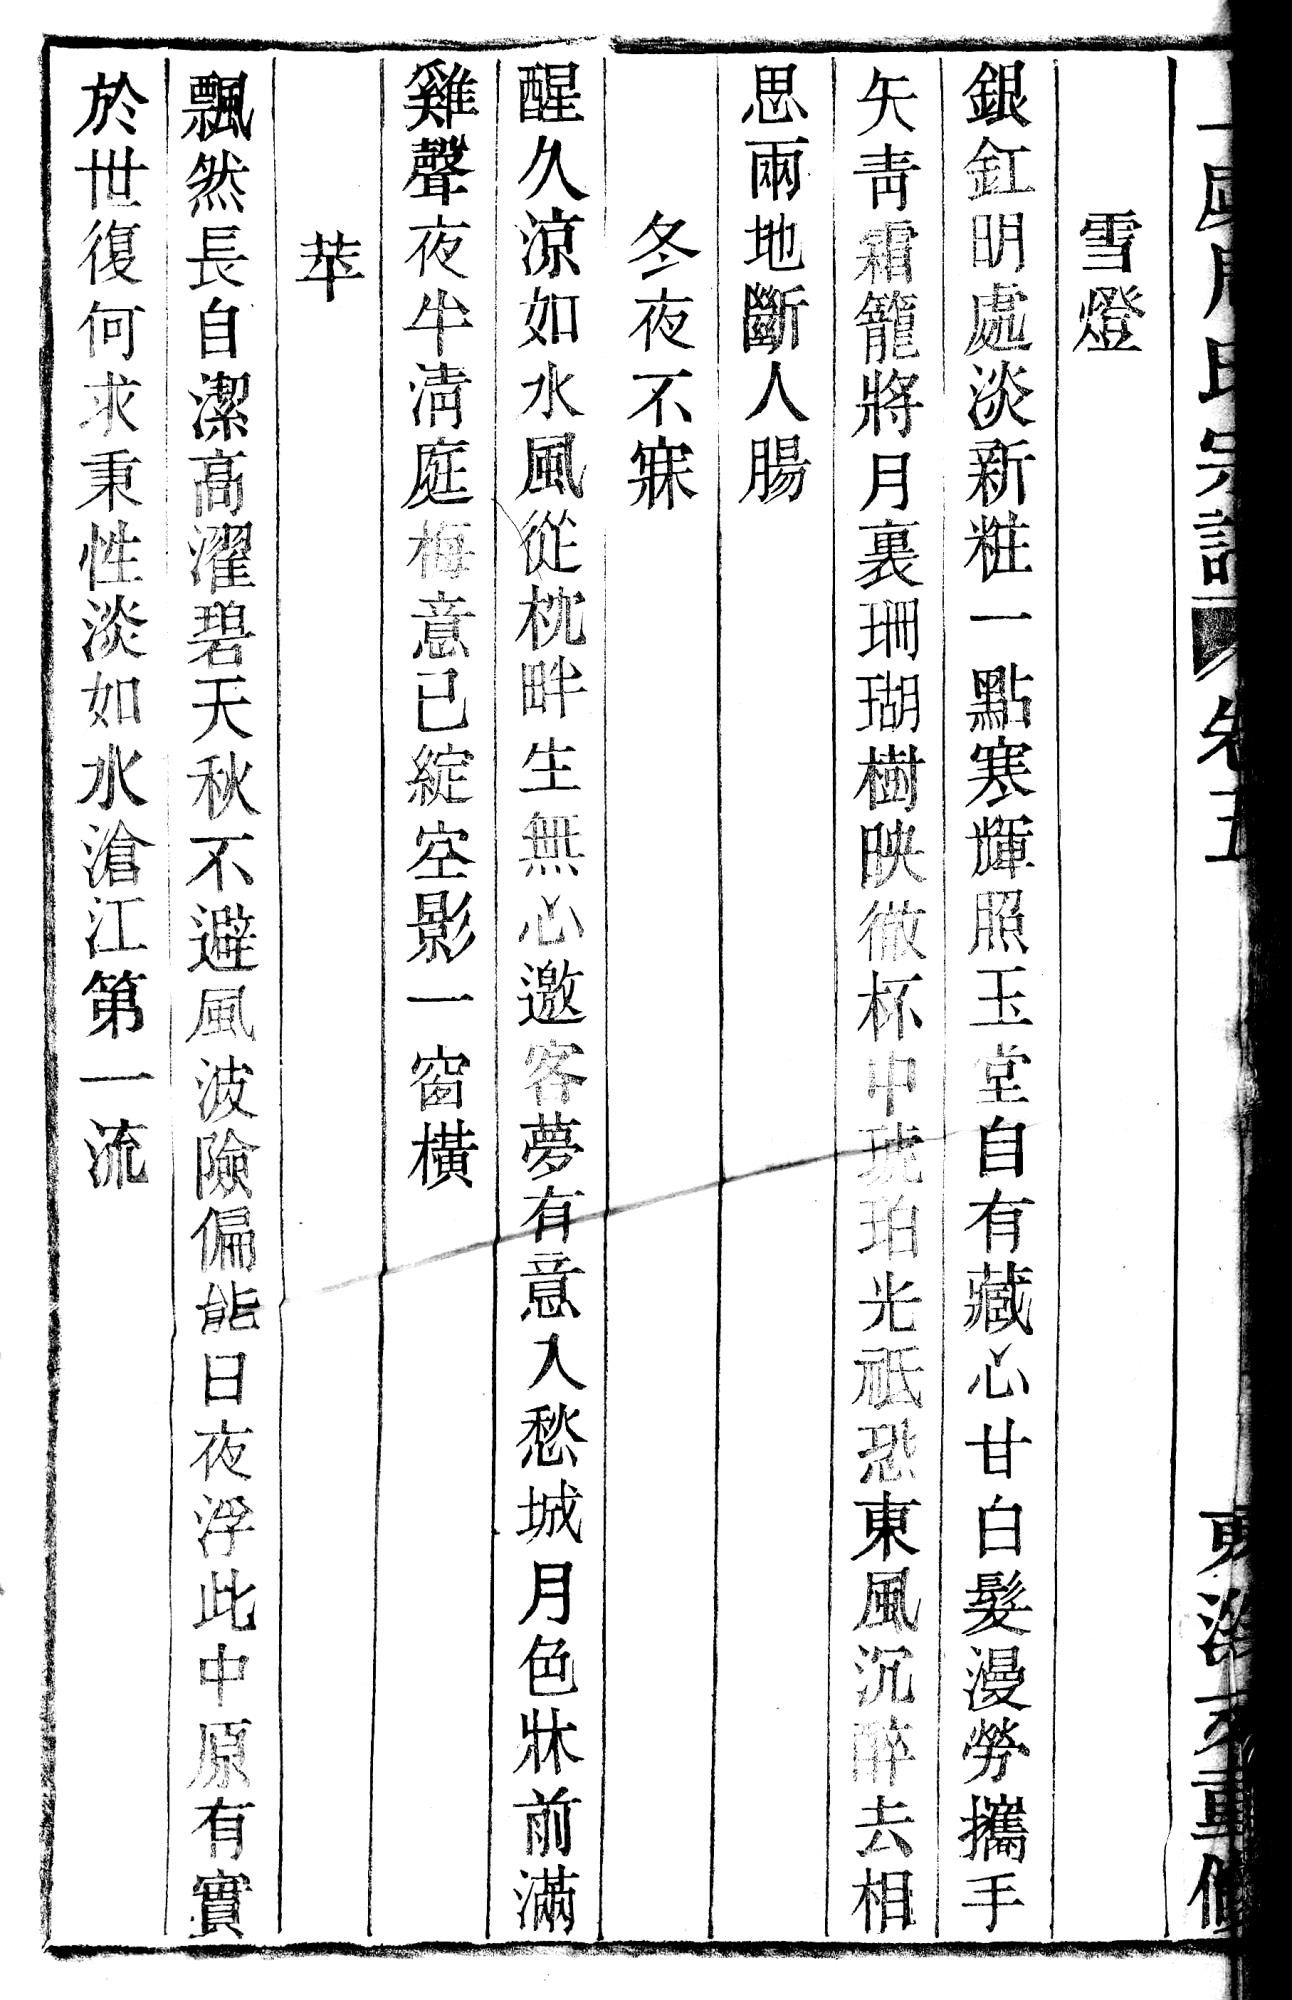 氏宗譜 卷五
雪燈
銀釭明處淡新粧一點寒輝照玉堂自有藏心甘白髮漫勞攜手
矢靑霜籠將月裏珊瑚樹映徹杯中琥珀光祗恐東風沉醉去相
思兩地斷人腸
冬夜不寐
醒久涼如水風從枕畔生無心邀客夢有意入愁城月色牀前滿
雞聲夜半淸庭梅意已綻空影一窗橫
苹
飄然長自潔高濯碧天秋不避風波險偏能日夜浮此中原有實
於世復何求秉性淡如水滄江第一流